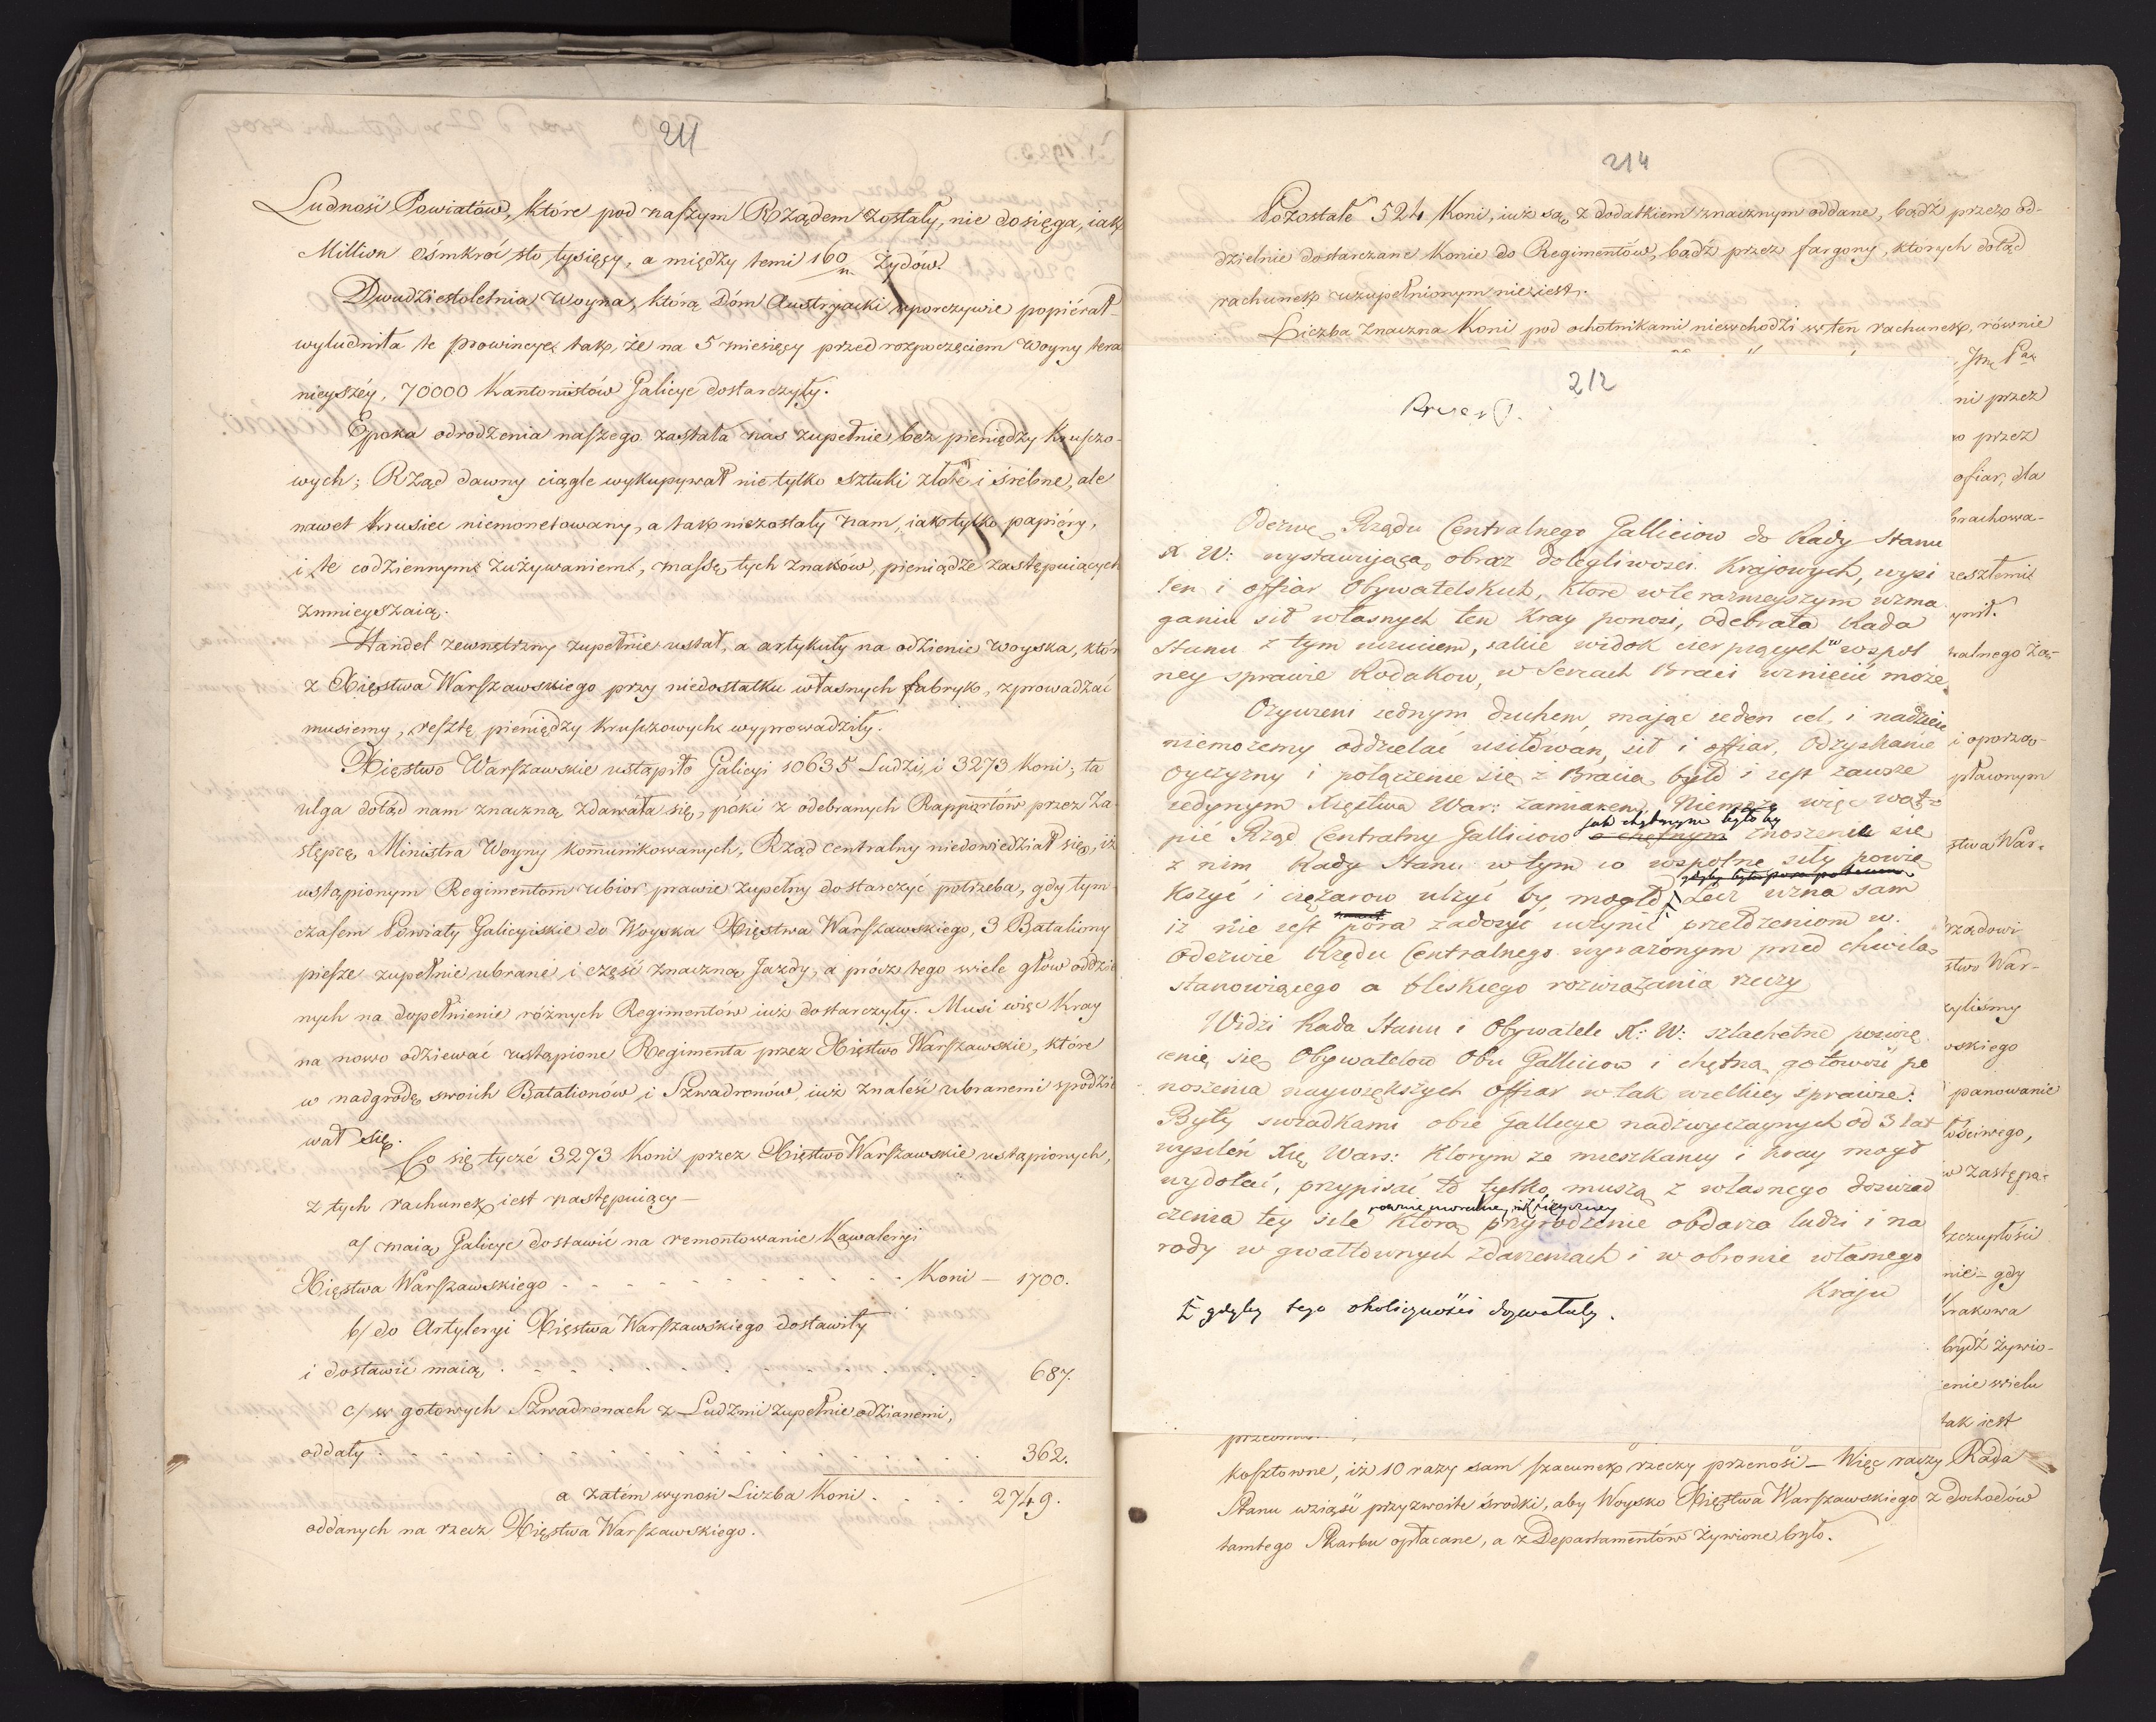 211
Ludność Powiatów, które pod naszym Rządem zostały, nie dosięga, iak
Million ośmkroć sto tysięcy, a między temi 160/m Żydów.
Dwudziestoletnia Woyna, którą Dóm Austryacki uporczywie popiérał
wyludniła te prowincye tak, że na 5 miesięcy przed rozpoczęciem Woyny tera
nieyszéy, 70000 Kantonistów Galicye dostarczyły.
Epoka odrodzenia naszego zastała nas zupełnie bez pieniędzy Kruszco-
wych; Rząd dawny ciągle wykupywał nie tylko sztuki złote i śrébne, ale
nawet Krusiec niemonetowany, a tak niezostały nam, iak tylko papiéry,
i te codziennym zużywaniem, massę tych znaków, pieniądze zastępuiących
zmnieyszaią.
Handel zewnętrzny zupełnie ustał, a artykuły na odzienie Woyska, któr
z Xięstwa Warszawskiego przy niedostatku własnych fabryk, zprowadzać
musiemy, resztę pieniędzy Kruszcowych wyprowadziły.
Xięstwo Warszawskie ustąpiło Galicyi 10635 Ludzi, i 3273 Koni; ta
ulga dotąd nam znaczną zdawała się, póki z odebranych Rapportów przez Za-
stępcę Ministra Woyny kommunikowanych, Rząd Centralny niedowiedział się, iż
ustąpionym Regimentom ubior prawie zupełny dostarczyć potrzeba, gdy tym
czasem Powiaty Galicyiskie do Woyska Xięstwa Warszawskiego, 3 Bataliony
piesze zupełnie ubrane i część znaczną Jazdy, a prócz tego wiele głow oddziel
nych na dopełnienie różnych Regimentów iuż dostarczyły. Musi więc Kray
na nowo odziewać ustąpione Regimenta przez Xięstwo Warszawskie, które
w nadgrodę swoich Batalionów i Szwadronów iuż znaleść ubranemi spodzie
wał się.
Co się tycze 3273 Koni przez Xięstwo Warszawskie ustąpionych,
z tych rachunek iest następuiący —
a/ maią Galicye dostawić na remontowanie Kawaleryi
Xięstwa Warszawskiego . . . . . . . . . Koni — 1700.
b/ do Artyleryi Xięstwa Warszawskiego dostawiły
i dostawić maią . . . . . . . . . 687.
c/ w gotowych Szwadronach z Ludzmi zupełnie odzianemi,
oddały . . . . . . . . . 362.
a zatém wynosi Liczba Koni . . . . 2749.
oddanych na rzecz Xięstwa Warszawskiego.
214
Pozostałe 524 Koni, iuż są z dodatkiem znacznym oddane, bądź przez od-
dzielnie dostarczane Konie do Regimentów, bądź przez fargony, których dotąd
rachunek uzupełnionym nie iest.
Liczba znaczna Koni pod ochotnikami niewchodzi w ten rachunek, równie
212
Odezwę Rządu Centralnego Galliciow do Rady Stanu
X. W: wystawującą obraz dolegliwości Krajowych, wysi
len i offiar Obywatelskich, które w teraznieyszym wzma
ganiu sił własnych ten Kray ponosi, odebrała Rada
Stanu z tym uczuciem, jakie widok cierpiących w wspol
ney sprawie Rodakow, w Sercach Braci wzniecić może.
Ożywieni jednym duchem, mając jeden cel, i nadzieie
niemożemy oddzielać usiłowań, sił i offiar, Odzyskanie
Oyczyzny i połączenie się z Bracią było i jest zawsze
jedynym Xięstwa War: zamiarem. Niemoże więc wąt-
pić Rząd Centralny Galliciow jak chętnym byłoby znoszenie się
z nim Rady Stanu w tym co wspolne siły powię
kszyć i ciężarow ulżyć by mogło Lecz uzna sam
iż nie jest pora zadosyć uczynić przełożeniom w
odezwie Rządu Centralnego wyrażonym przed chwilą
stanowiącego a bliskiego rozwiązania rzeczy
Widzi Rada Stanu i Obywatele X: W: szlachetne poświę
cenie się Obywatelow Obu Galliciow i chętną gotowość po
noszenia naywiększych offiar w tak wielkiey sprawie.
Były swiadkami obie Gallicye nadzwyczaynych od 3 lat
wysileń Xię Wars: Którym że mieszkancy i kray mogł
wydołać, przypisać to tylko muszą z własnego doswiad
czenia tey sile równie moralney jak fizyczney którą przyrodzenie obdarza ludzi i na
rody w gwałtownych zdarzeniach i w obronie własnego
Kraju
gdyby tego okoliczności dozwalały.
ni przez
przez
ofiar, dla
brachowa-
i oporzą-
stwa War-
rządowi
stwo War-
panowanie
w zastępa-
nie — gdy
Krakowa
bydź żywio-
enie wielu
tak iest
kosztowne, iż 10 razy sam szacunek rzeczy przenosi — Więc raczy Rada
Stanu wziąść przyzwoite środki, aby Woysko Xięstwa Warszawskiego z dochodów
tamtego Skarbu opłacane, a z Departamentów żywione było.